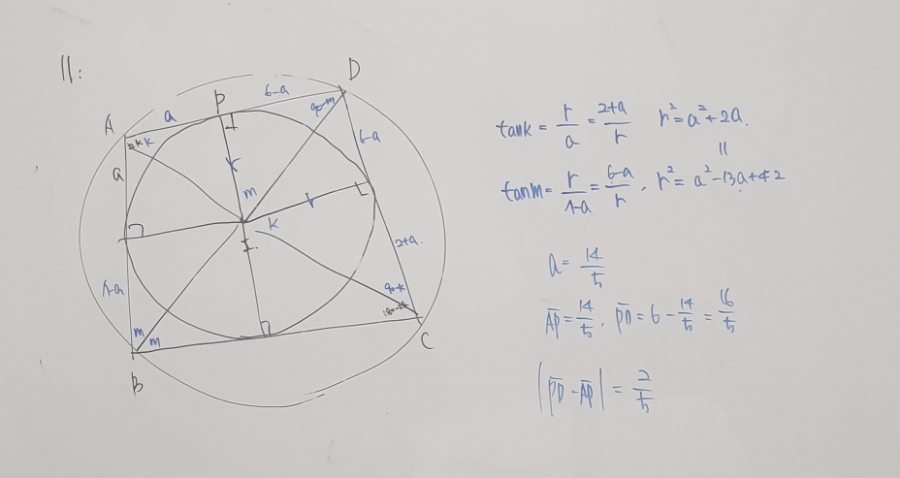 11:
D
6-a
P
a
A
90-m
k k
6-a
a
r
m
r
k
I
2+a.
7-a
90-k
m
m
C
B
tank = r/a = 2+a/r r² = a²+2a.
||
tanm = r/7-a = 6-a/r, r² = a²-13a+42
a = 14/5
AP = 14/5, PD = 6 - 14/5 = 16/5
|PD - AP| = 2/5